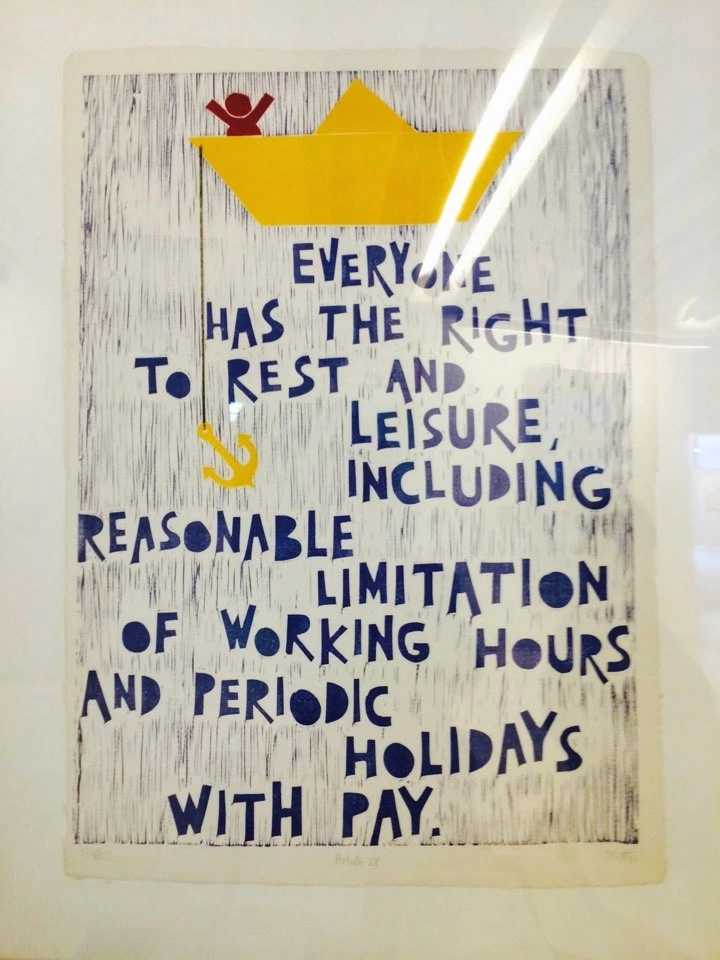 EVERYONE
HAS THE RIGHT
TO REST AND
LEISURE,
INCLUDING
REASONABLE
LIMITATION
OF WORKING HOURS
AND PERIODIC
HOLIDAYS
WITH PAY.
Article 24